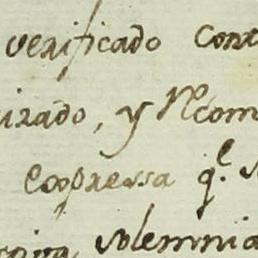 verificado cont
izado, y Rcom
Expressa q.e
solemnia